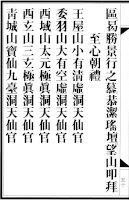 區昜勝景行之慕恭潔瑤壇望山叩拜
至心朝禮
王屋山小有清虛洞天仙官
委羽山大有空虛洞天仙官
西城山太元極眞洞天仙官
西玄山三玄極眞洞天仙官
青城山寶仙九臺洞天仙官